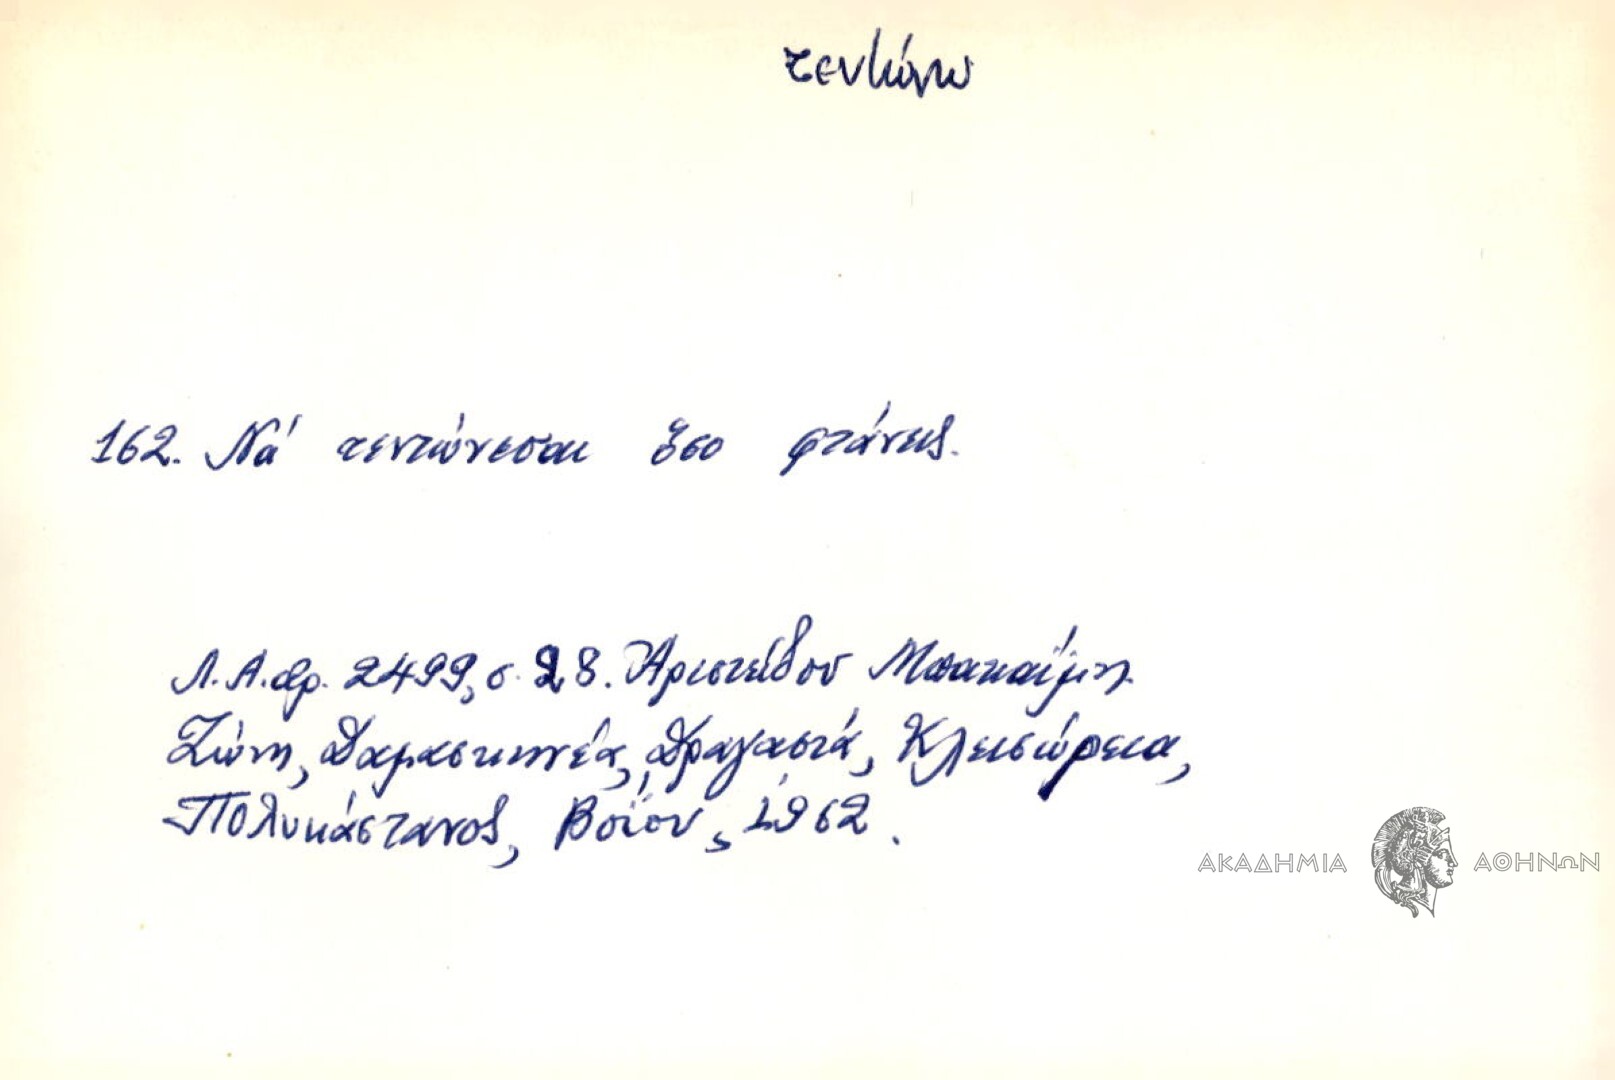 τεντώνω
162. Νά τεντώνεσαι ὅσο φτάνεις.
Λ.Α. αρ. 2499, σ. 28. Ἀριστείδου Μπακαΐμη
Ζώνη, Δαμασκηνέα, Δραγασιά, Κλεισώρεια,
Πολυκάστανος, Βοΐου, 1962.
ΑΚΑΔΗΜΙΑ ΑΘΗΝΩΝ